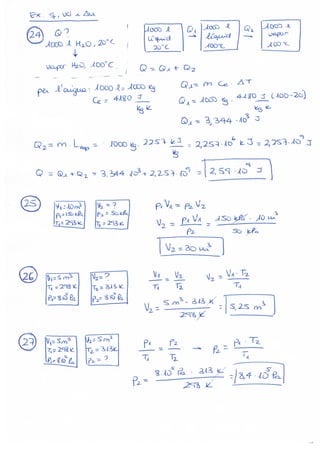 24 Q?
1000 l H₂O, 20°C
↓
vapor H₂O, 100°C
1000 l líquid 20°C
Q₁ →
1000 l líquid 100°C
Q₂ →
1000 l vapor 100°C
Q = Q₁ + Q₂
per l'aigua: 1000 l = 1000 kg
Ce = 4180 J/kg K
Q₁ = m Ce · ΔT
Q₁ = 1000 kg · 4180 J/kg K (100-20)
Q₁ = 3,344·10⁸ J
Q₂ = m · Lvap = 1000 kg · 2257 kJ/kg = 2,257·10⁶ kJ = 2,257·10⁹ J
Q = Q₁ + Q₂ = 3,344·10⁸ + 2,257·10⁹ = 2,59·10⁹ J
25
V₁ = 10 m³
P₁ = 150 kPa
T₁ = 293 K
V₂ = ?
P₂ = 50 kPa
T₂ = 293 K
P₁ V₁ = P₂ V₂
V₂ = P₁ V₁ / P₂ = 150 kPa · 10 m³ / 50 kPa
V₂ = 30 m³
26
V₁ = 5 m³
T₁ = 298 K
P₁ = 8·10⁵ Pa
V₂ = ?
T₂ = 313 K
P₂ = 8·10⁵ Pa
V₁/T₁ = V₂/T₂
V₂ = V₁ · T₂ / T₁
V₂ = 5 m³ · 313 K / 298 K = 5,25 m³
27
V₁ = 5 m³
T₁ = 298 K
P₁ = 8·10⁵ Pa
V₂ = 5 m³
T₂ = 313 K
P₂ = ?
P₁/T₁ = P₂/T₂ → P₂ = P₁ · T₂ / T₁
P₂ = 8·10⁵ Pa · 313 K / 298 K = 8,4·10⁵ Pa